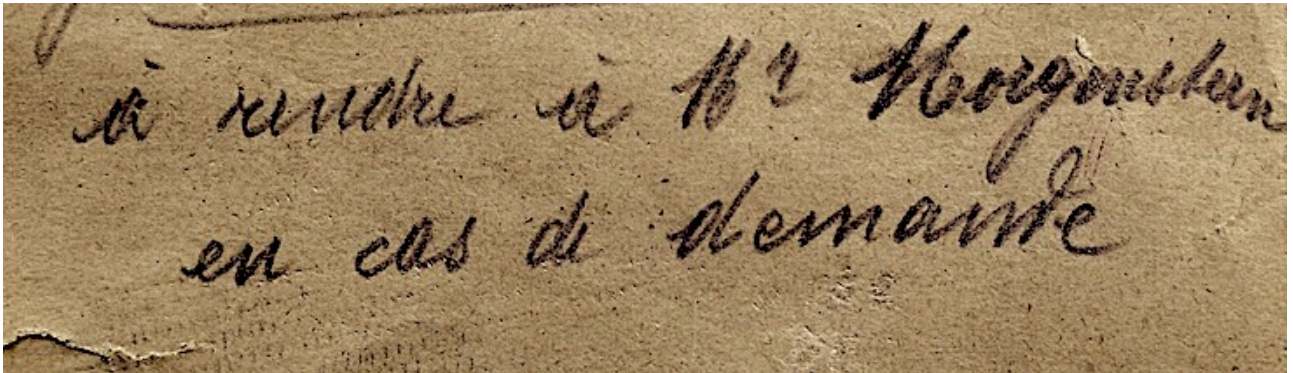 à rendre à Mr Morgenstern
en cas de demande